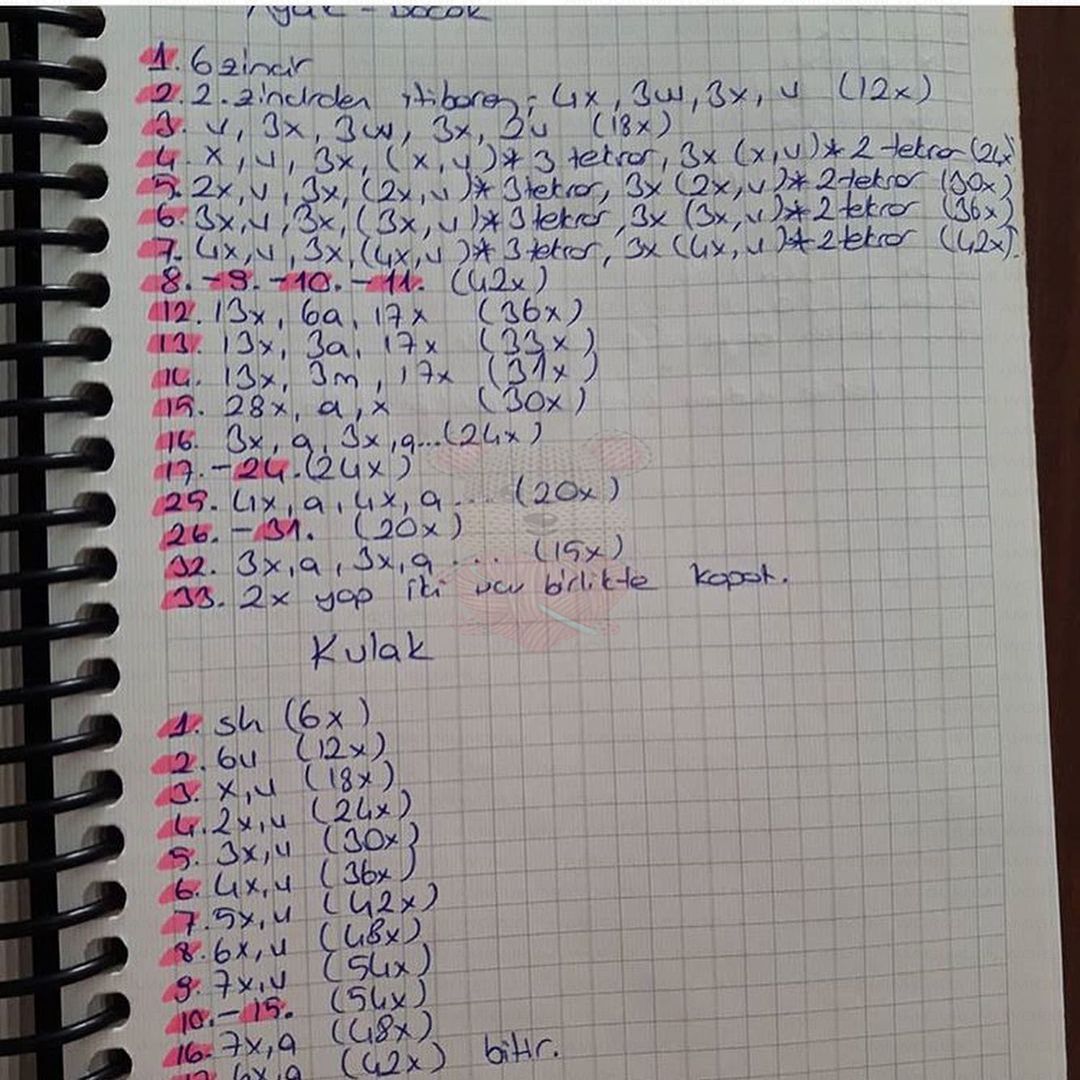 Ayak - Bacak
1. 6 zincir
2. 2. zincirden itibaren; 4x, 3w, 3x, v (12x)
3. v, 3x, 3w, 3x, 3v (18x)
4. x, v, 3x, (x, v)* 3 tekrar, 3x (x, v)* 2 tekrar (24x)
5. 2x, v, 3x, (2x, v)* 3 tekrar, 3x (2x, v)* 2 tekrar (30x)
6. 3x, v, 3x, (3x, v)* 3 tekrar, 3x (3x, v)* 2 tekrar (36x)
7. 4x, v, 3x, (4x, v)* 3 tekrar, 3x (4x, v)* 2 tekrar (42x).
8. - 9. - 10. - 11. (42x)
12. 13x, 6a, 17x (36x)
13. 13x, 3a, 17x (33x)
14. 13x, 3m, 17x (31x)
15. 28x, a, x (30x)
16. 3x, a, 3x, a... (24x)
17. - 24. (24x)
25. 4x, a, 4x, a... (20x)
26. - 31. (20x)
32. 3x, a, 3x, a ... (15x)
33. 2x yap iki ucu birlikte kapat.
Kulak
1. sh (6x)
2. 6v (12x)
3. x, v (18x)
4. 2x, v (24x)
5. 3x, v (30x)
6. 4x, v (36x)
7. 5x, v (42x)
8. 6x, v (48x)
9. 7x, v (54x)
10. - 15. (54x)
16. 7x, a (48x)
17. 6x, a (42x) bitir.